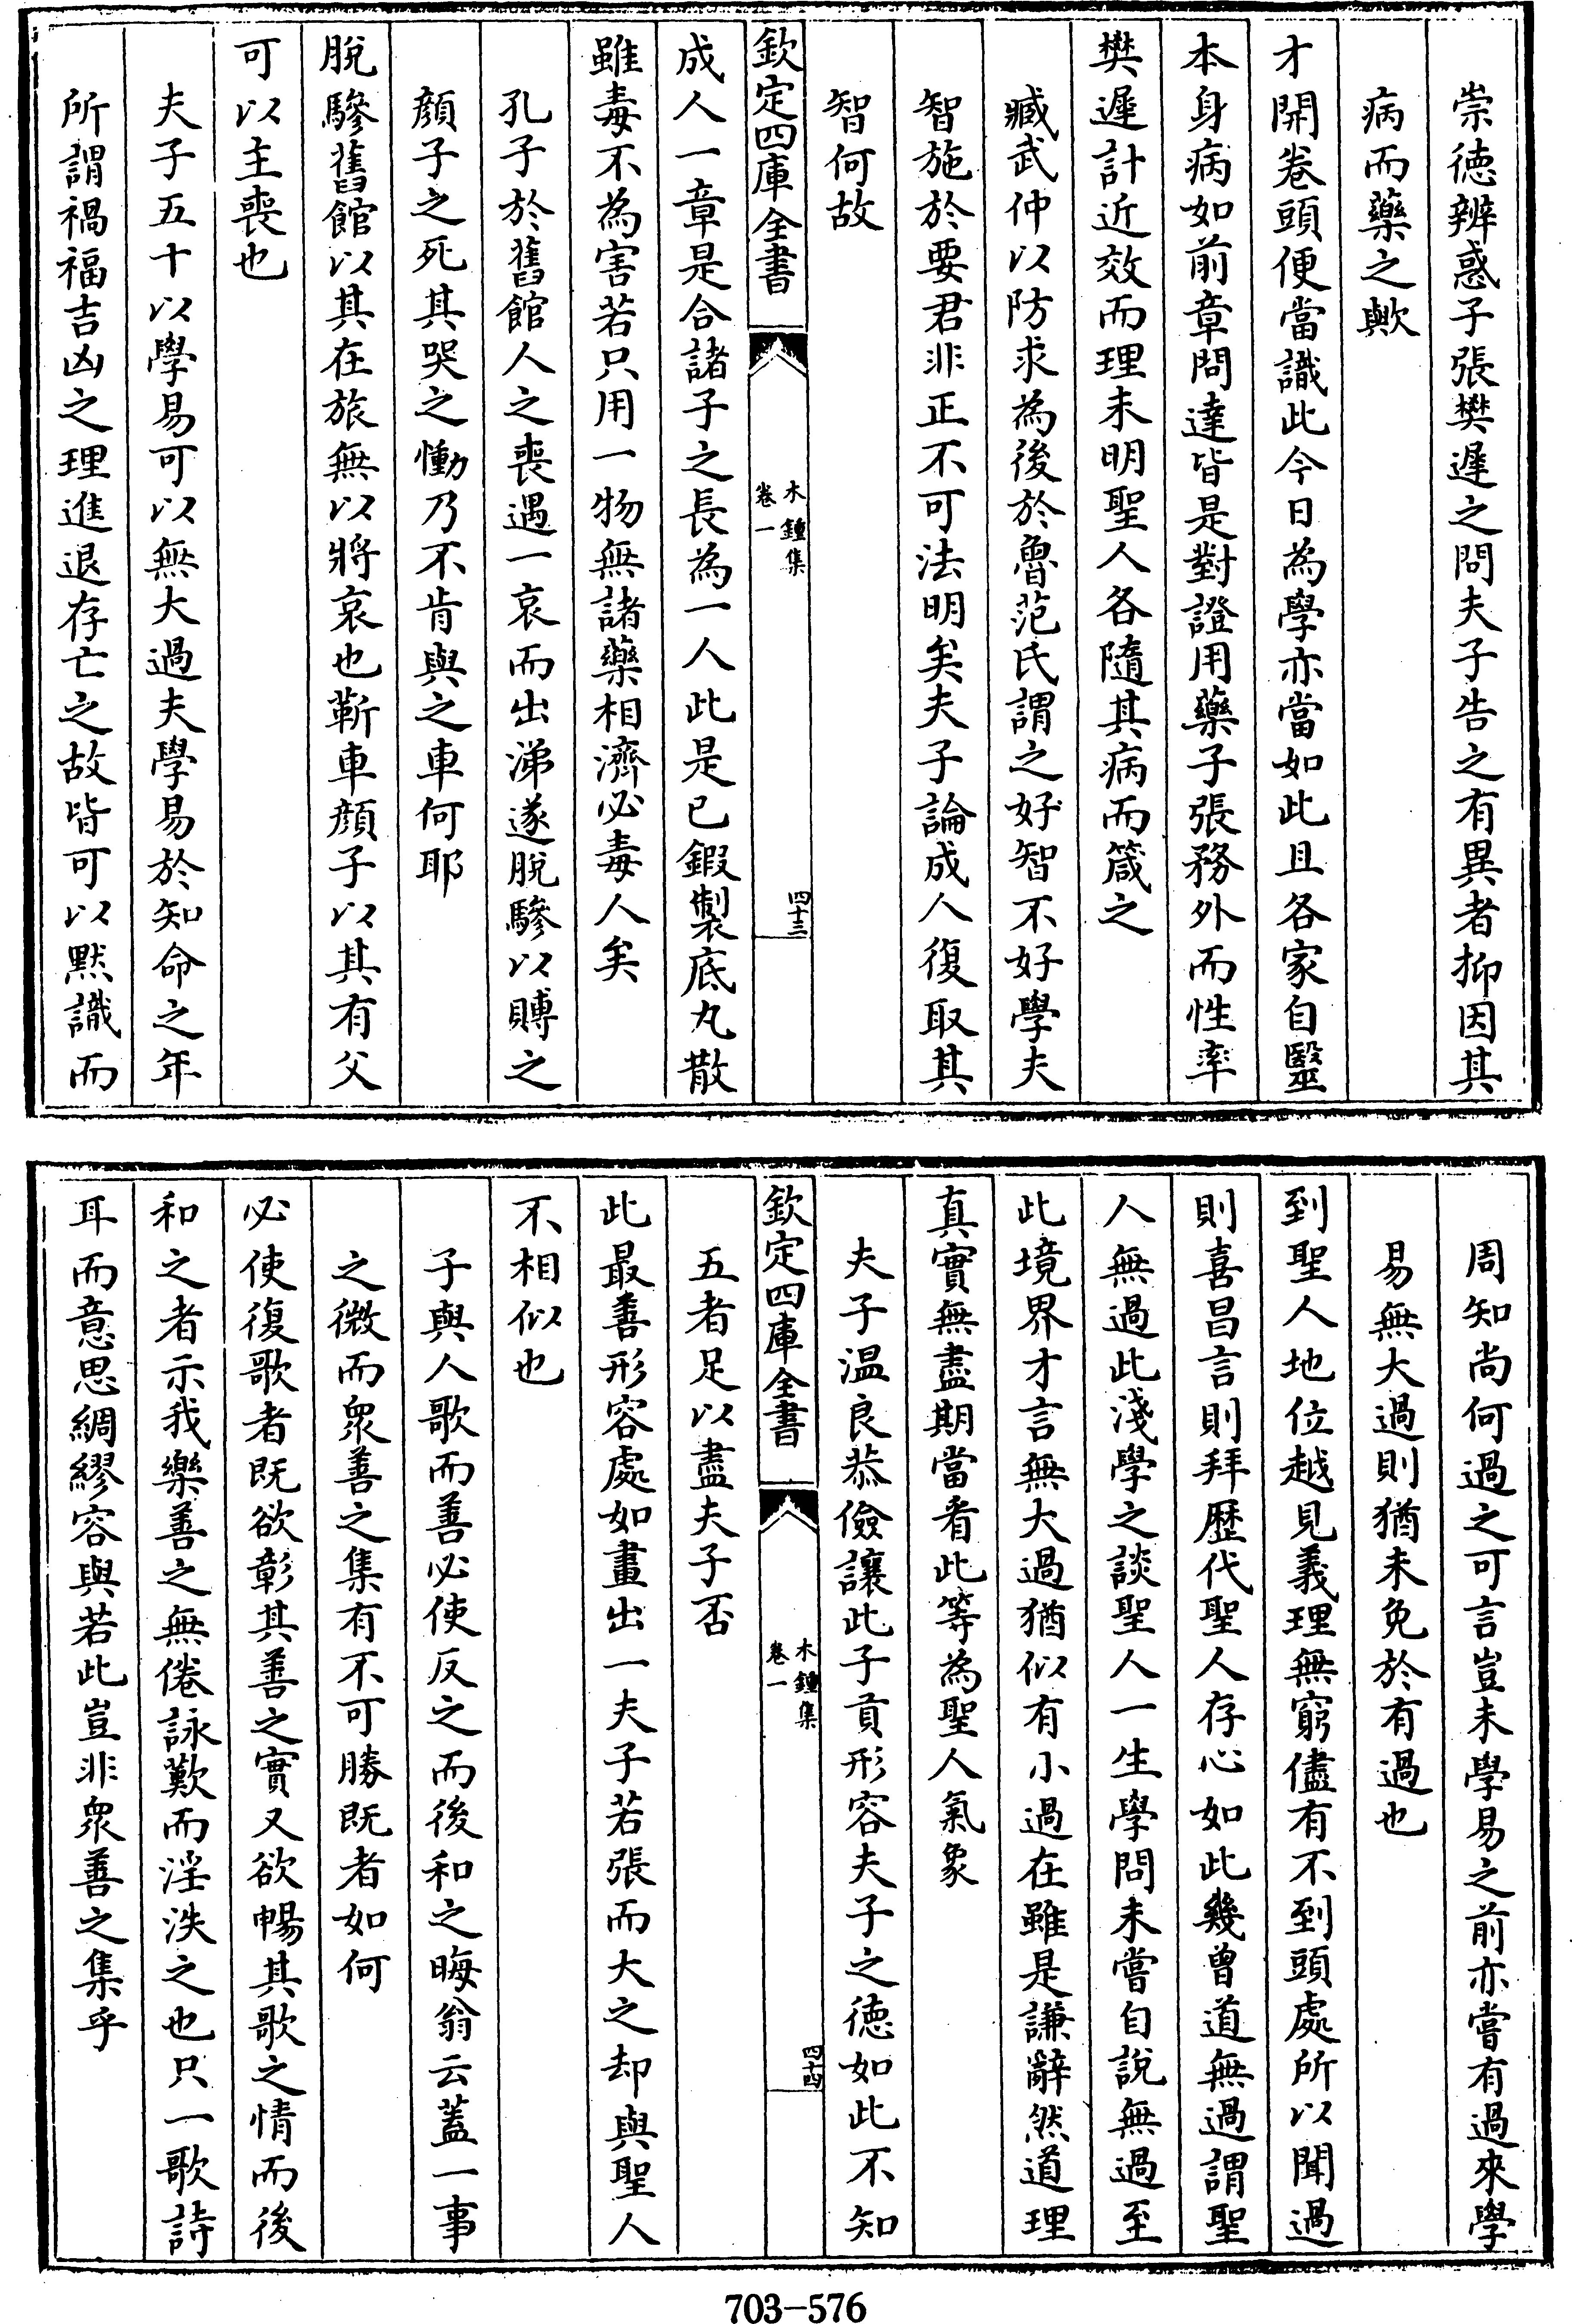 崇德辨惑子張樊遲之問夫子告之有異者抑因其
病而藥之歟
才開卷頭便當識此今日為學亦當如此且各家自毉
本身病如前章問達皆是對證用藥子張務外而性率
樊遲計近效而理未明聖人各隨其病而箴之
臧武仲以防求為後於魯范氏謂之好智不好學夫
智施於要君非正不可法明矣夫子論成人復取其
智何故
欽定四庫全書
木鍾集
卷一
四十三
成人一章是合諸子之長為一人此是已鍜製底丸散
雖毒不為害若只用一物無諸藥相濟必毒人矣
孔子於舊館人之喪遇一哀而出涕遂脫驂以賻之
顏子之死其哭之慟乃不肯與之車何耶
脫驂舊館以其在旅無以將哀也靳車顏子以其有父
可以主喪也
夫子五十以學易可以無大過夫學易於知命之年
所謂禍福吉凶之理進退存亡之故皆可以默識而
周知尚何過之可言豈未學易之前亦嘗有過來學
易無大過則猶未免於有過也
到聖人地位越見義理無窮儘有不到頭處所以聞過
則喜昌言則拜歷代聖人存心如此幾曾道無過謂聖
人無過此淺學之談聖人一生學問未嘗自說無過至
此境界才言無大過猶似有小過在雖是謙辭然道理
真實無盡期當看此等為聖人氣象
夫子温良恭儉讓此子貢形容夫子之德如此不知
欽定四庫全書
木鍾集
卷一
四十四
五者足以盡夫子否
此最善形容處如畫出一夫子若張而大之却與聖人
不相似也
子與人歌而善必使反之而後和之晦翁云蓋一事
之微而衆善之集有不可勝既者如何
必使復歌者既欲彰其善之實又欲暢其歌之情而後
和之者示我樂善之無倦詠歎而淫泆之也只一歌詩
耳而意思綢繆容與若此豈非衆善之集乎
703-576